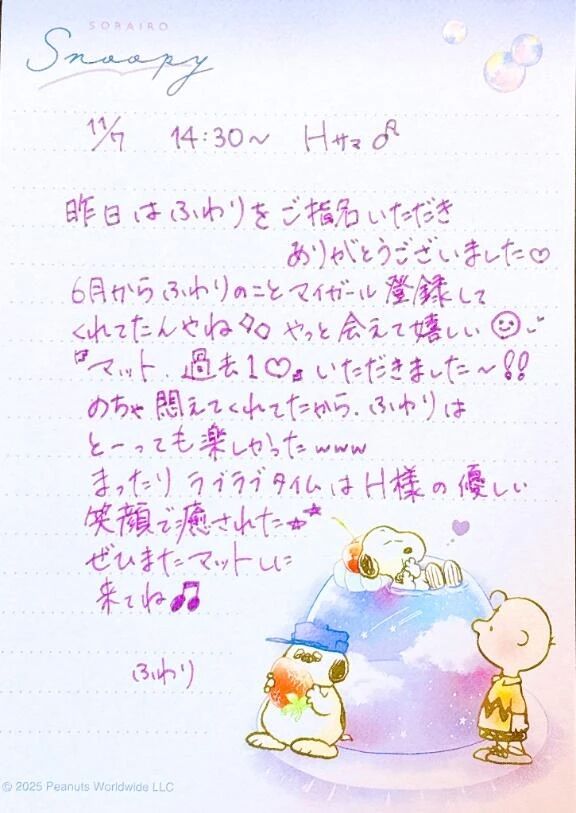 SORAIRO
Snoopy
11/7 14:30〜 Hサマ♂
昨日はふわりをご指名いただき
ありがとうございました♡
6月からふわりのことマイガール登録して
くれてたんやね やっと会えて嬉しい
『マット、過去1♡』いただきました〜!!
めちゃ悶えてくれてたから、ふわりは
とーっても楽しかったwww
まったりラブラブタイムはH様の優しい
笑顔で癒された☆☆
ぜひまたマットしに
来てね♫
ふわり
© 2025 Peanuts Worldwide LLC